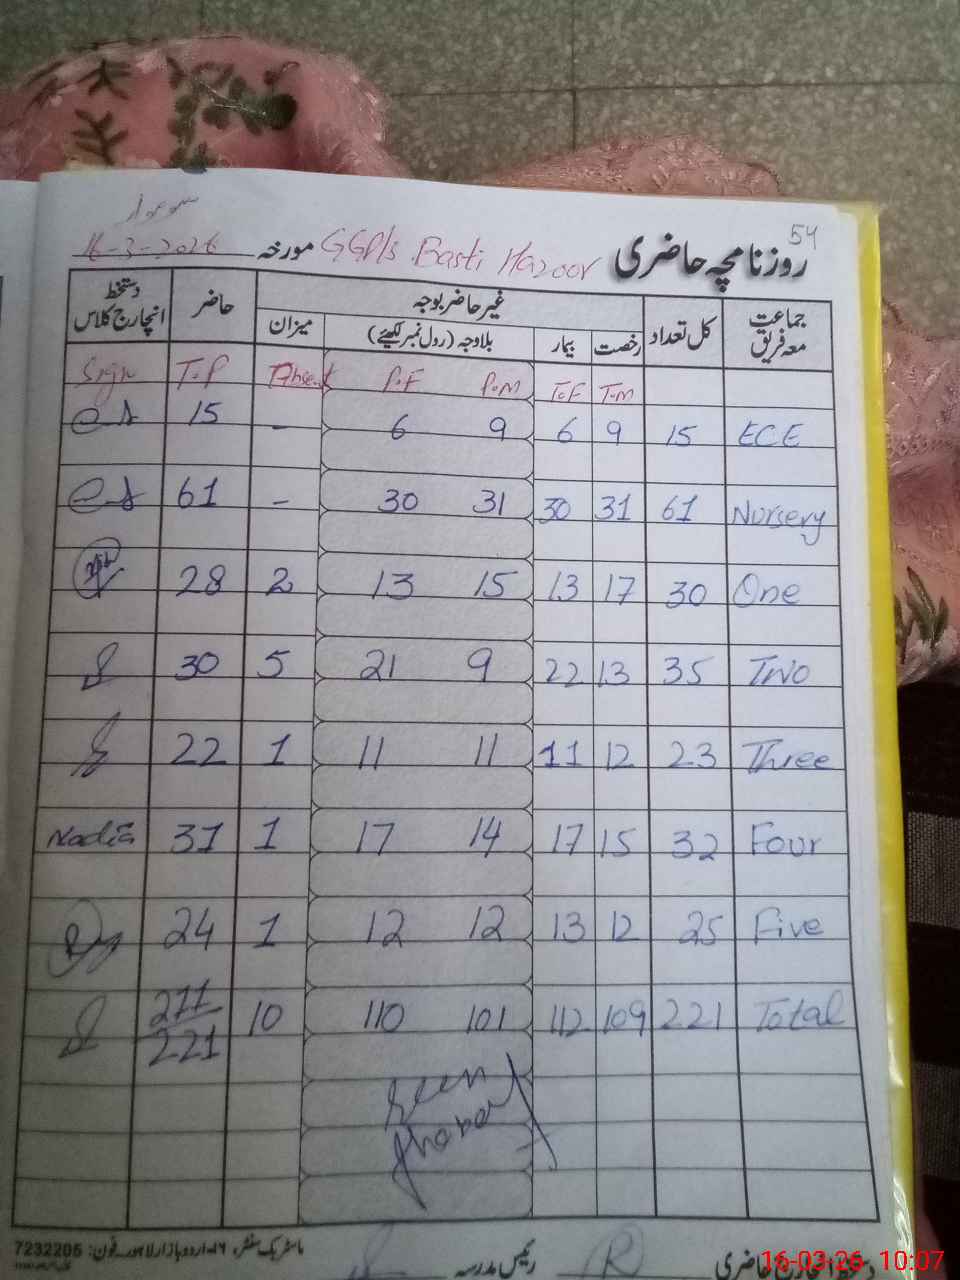 54
سوموار
روزنامچہ حاضری GGPls Basti Hazoor مورخہ 16-3-2026
جماعت معہ فریق کل تعداد غیر حاضر بوجہ حاضر دستخط انچارج کلاس
رخصت بیمار بلاوجہ (رول نمبر لکھیئے) میزان
Sign T.P Absent P.F P.M T.F T.M
15 - 6 9 6 9 15 ECE
61 - 30 31 30 31 61 Nursery
28 2 13 15 13 17 30 One
30 5 21 9 22 13 35 Two
22 1 11 11 11 12 23 Three
Nadia 31 1 17 14 17 15 32 Four
24 1 12 12 13 12 25 Five
211/221 10 110 101 112 109 221 Total
Seen
رئیس مدرسہ
ماسٹر بک سنٹر، ۱۶۔اردو بازار لاہور۔فون: 7232205
16-03-26 10:07